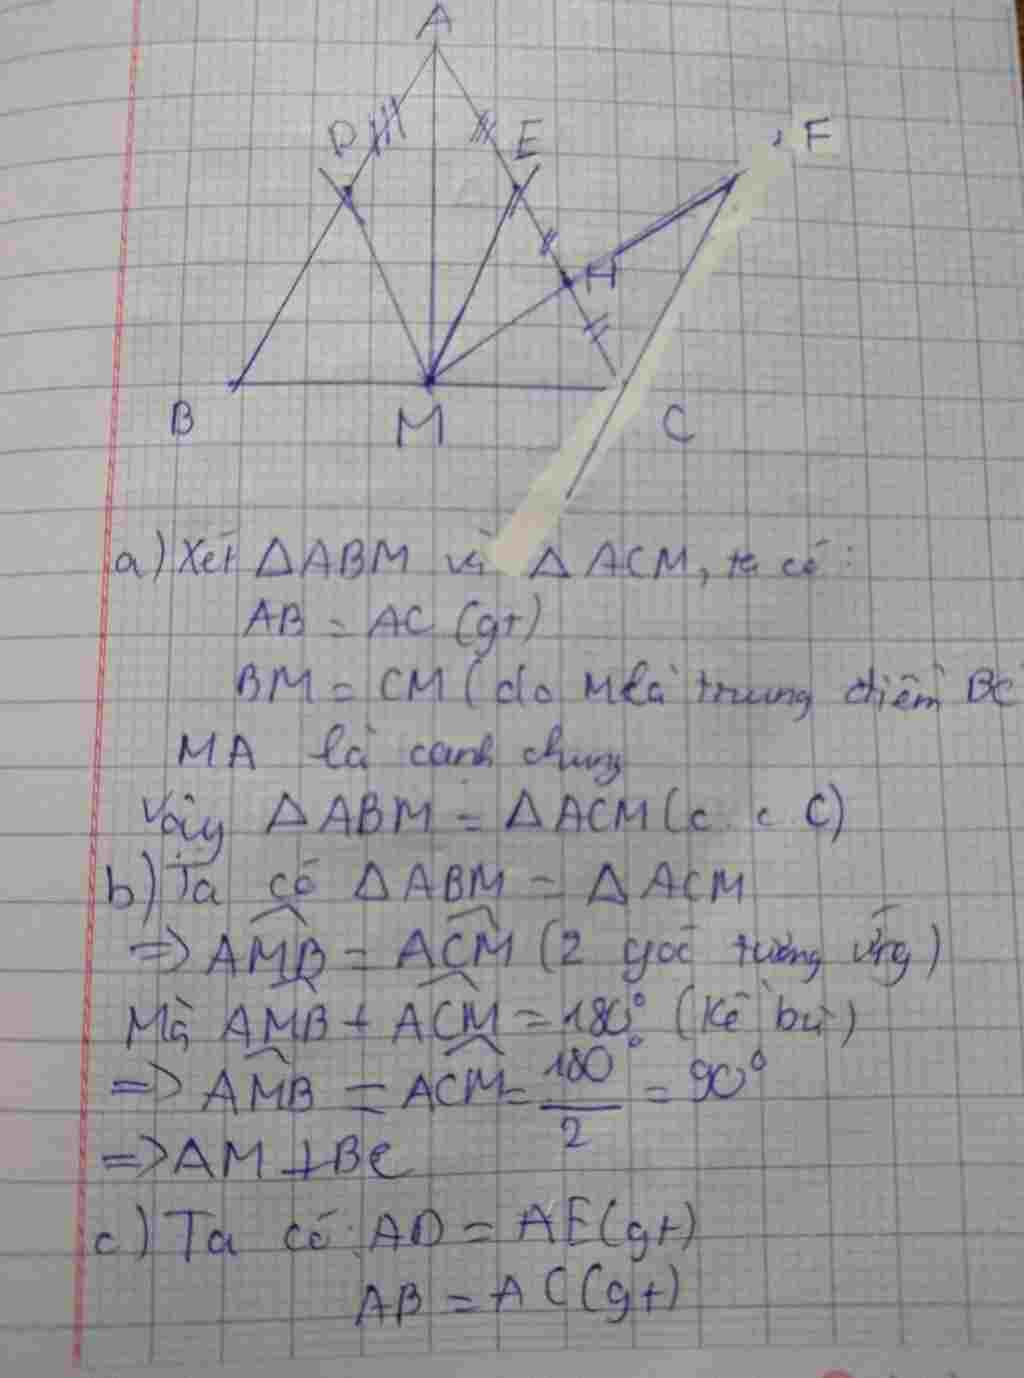 A
D
E
F
H
B
M
C
a) Xét ΔABM và ΔACM, ta có:
AB = AC (gt)
BM = CM (do M là trung điểm BC
MA là cạnh chung
Vậy ΔABM = ΔACM (c. c C)
b) Ta có ΔABM = ΔACM
=> AMB = ACM (2 góc tương ứng)
Mà AMB + ACM = 180° (kề bù)
=> AMB = ACM = 180°/2 = 90°
=> AM ⊥ BC
c) Ta có: AD = AE (gt)
AB = AC (gt)